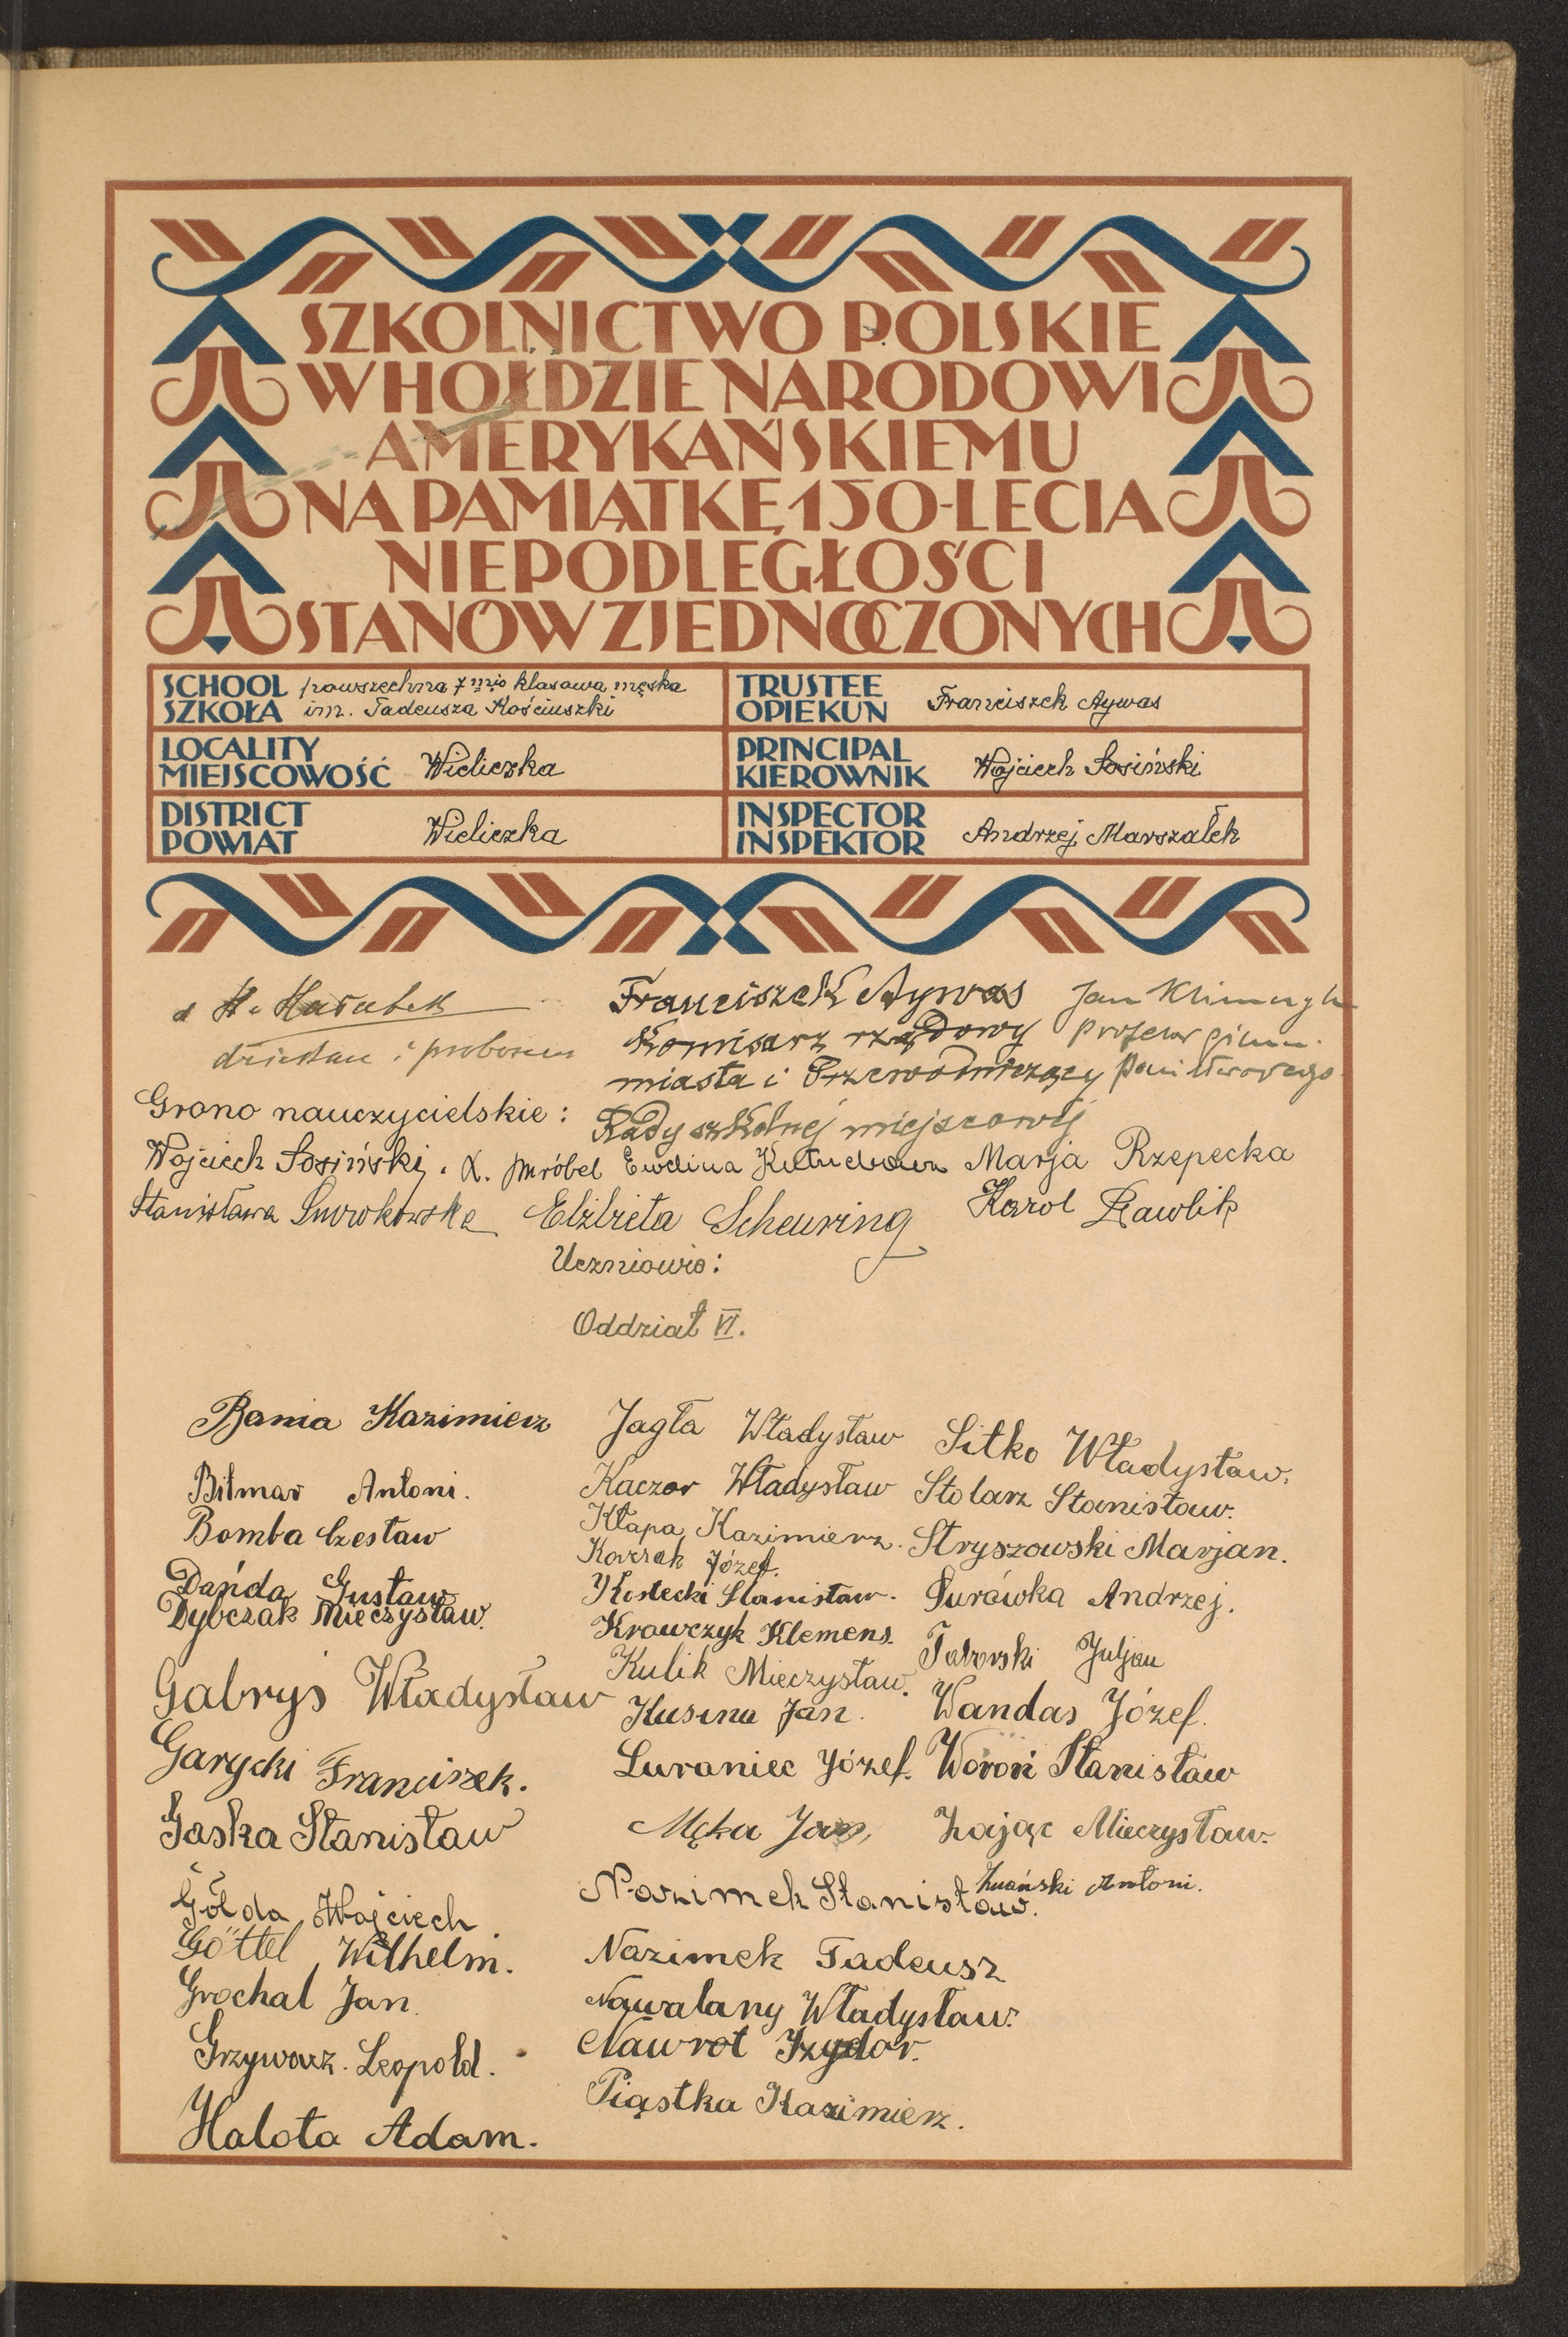 SZKOLNICTWO POLSKIE
W HOŁDZIE NARODOWI
AMERYKAŃSKIEMU
NA PAMIĄTKĘ 150-LECIA
NIEPODLEGŁOŚCI
STANÓW ZJEDNOCZONYCH
SCHOOL
SZKOŁA
powszechna 7 mio klasowa męska
im. Tadeusza Kościuszki
TRUSTEE
OPIEKUN
Franciszek Aywas
LOCALITY
MIEJSCOWOŚĆ
Wieliczka
PRINCIPAL
KIEROWNIK
Wojciech Sosiński
DISTRICT
POWIAT
Wieliczka
INSPECTOR
INSPEKTOR
Andrzej Marszałek
dziekan i proboszcz
Franciszek Aywas
Komisarz rządowy
miasta i Przewodniczący
Rady szkolnej miejscowej
Jan
profesor gimn.
państwowego
Grono nauczycielskie:
Wojciech Sosiński. Wróbel Marja Rzepecka
Stanisława Elżbieta Scheuring Karol Pawlik
Uczniowie:
Oddział VI.
Bania Kazimierz
Bitmar Antoni.
Bomba Czesław
Dańda Gustaw
Dybczak Mieczysław.
Gabryś Władysław
Garycki Franciszek.
Gaska Stanisław
Gołda Wojciech
Göttel Wilhelm.
Grochal Jan.
Grzywacz. Leopold.
Halota Adam.
Jagła Władysław
Kaczor Władysław
Kłapa Kazimierz.
Józef.
Kostecki Stanisław.
Krawczyk Klemens.
Kulik Mieczysław.
Kusina Jan.
Luraniec Józef.
Męka Jan,
Nazimek Stanisław.
Nazimek Tadeusz
Nawalany Władysław.
Nawrot Izydor.
Piąstka Kazimierz.
Sitko Władysław.
Stolarz Stanisław.
Stryszowski Marjan.
Surówka Andrzej.
Taborski Juljan
Wandas Józef.
Woroń Stanisław
Zając Mieczysław.
Antoni.